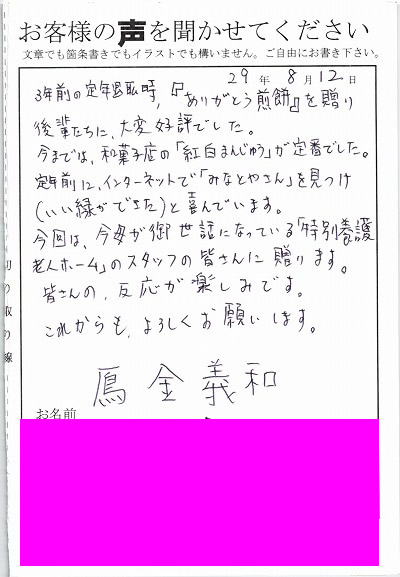 お客様の声を聞かせてください
文章でも箇条書きでもイラストでも構いません。ご自由にお書き下さい。
29年8月12日
3年前の定年退職時,『ありがとう煎餅』を贈り
後輩たちに、大変好評でした。
今までは、和菓子店の「紅白まんじゅう」が定番でした。
定年前に、インターネットで「みなとやさん」を見つけ
(いい縁ができた)と喜んでいます。
今回は、今母が御世話になっている「特別養護
老人ホーム」のスタッフの皆さんに贈ります。
皆さんの、反応が楽しみです。
これからも、よろしくお願いします。
鴈金義和
お名前
切り取り線